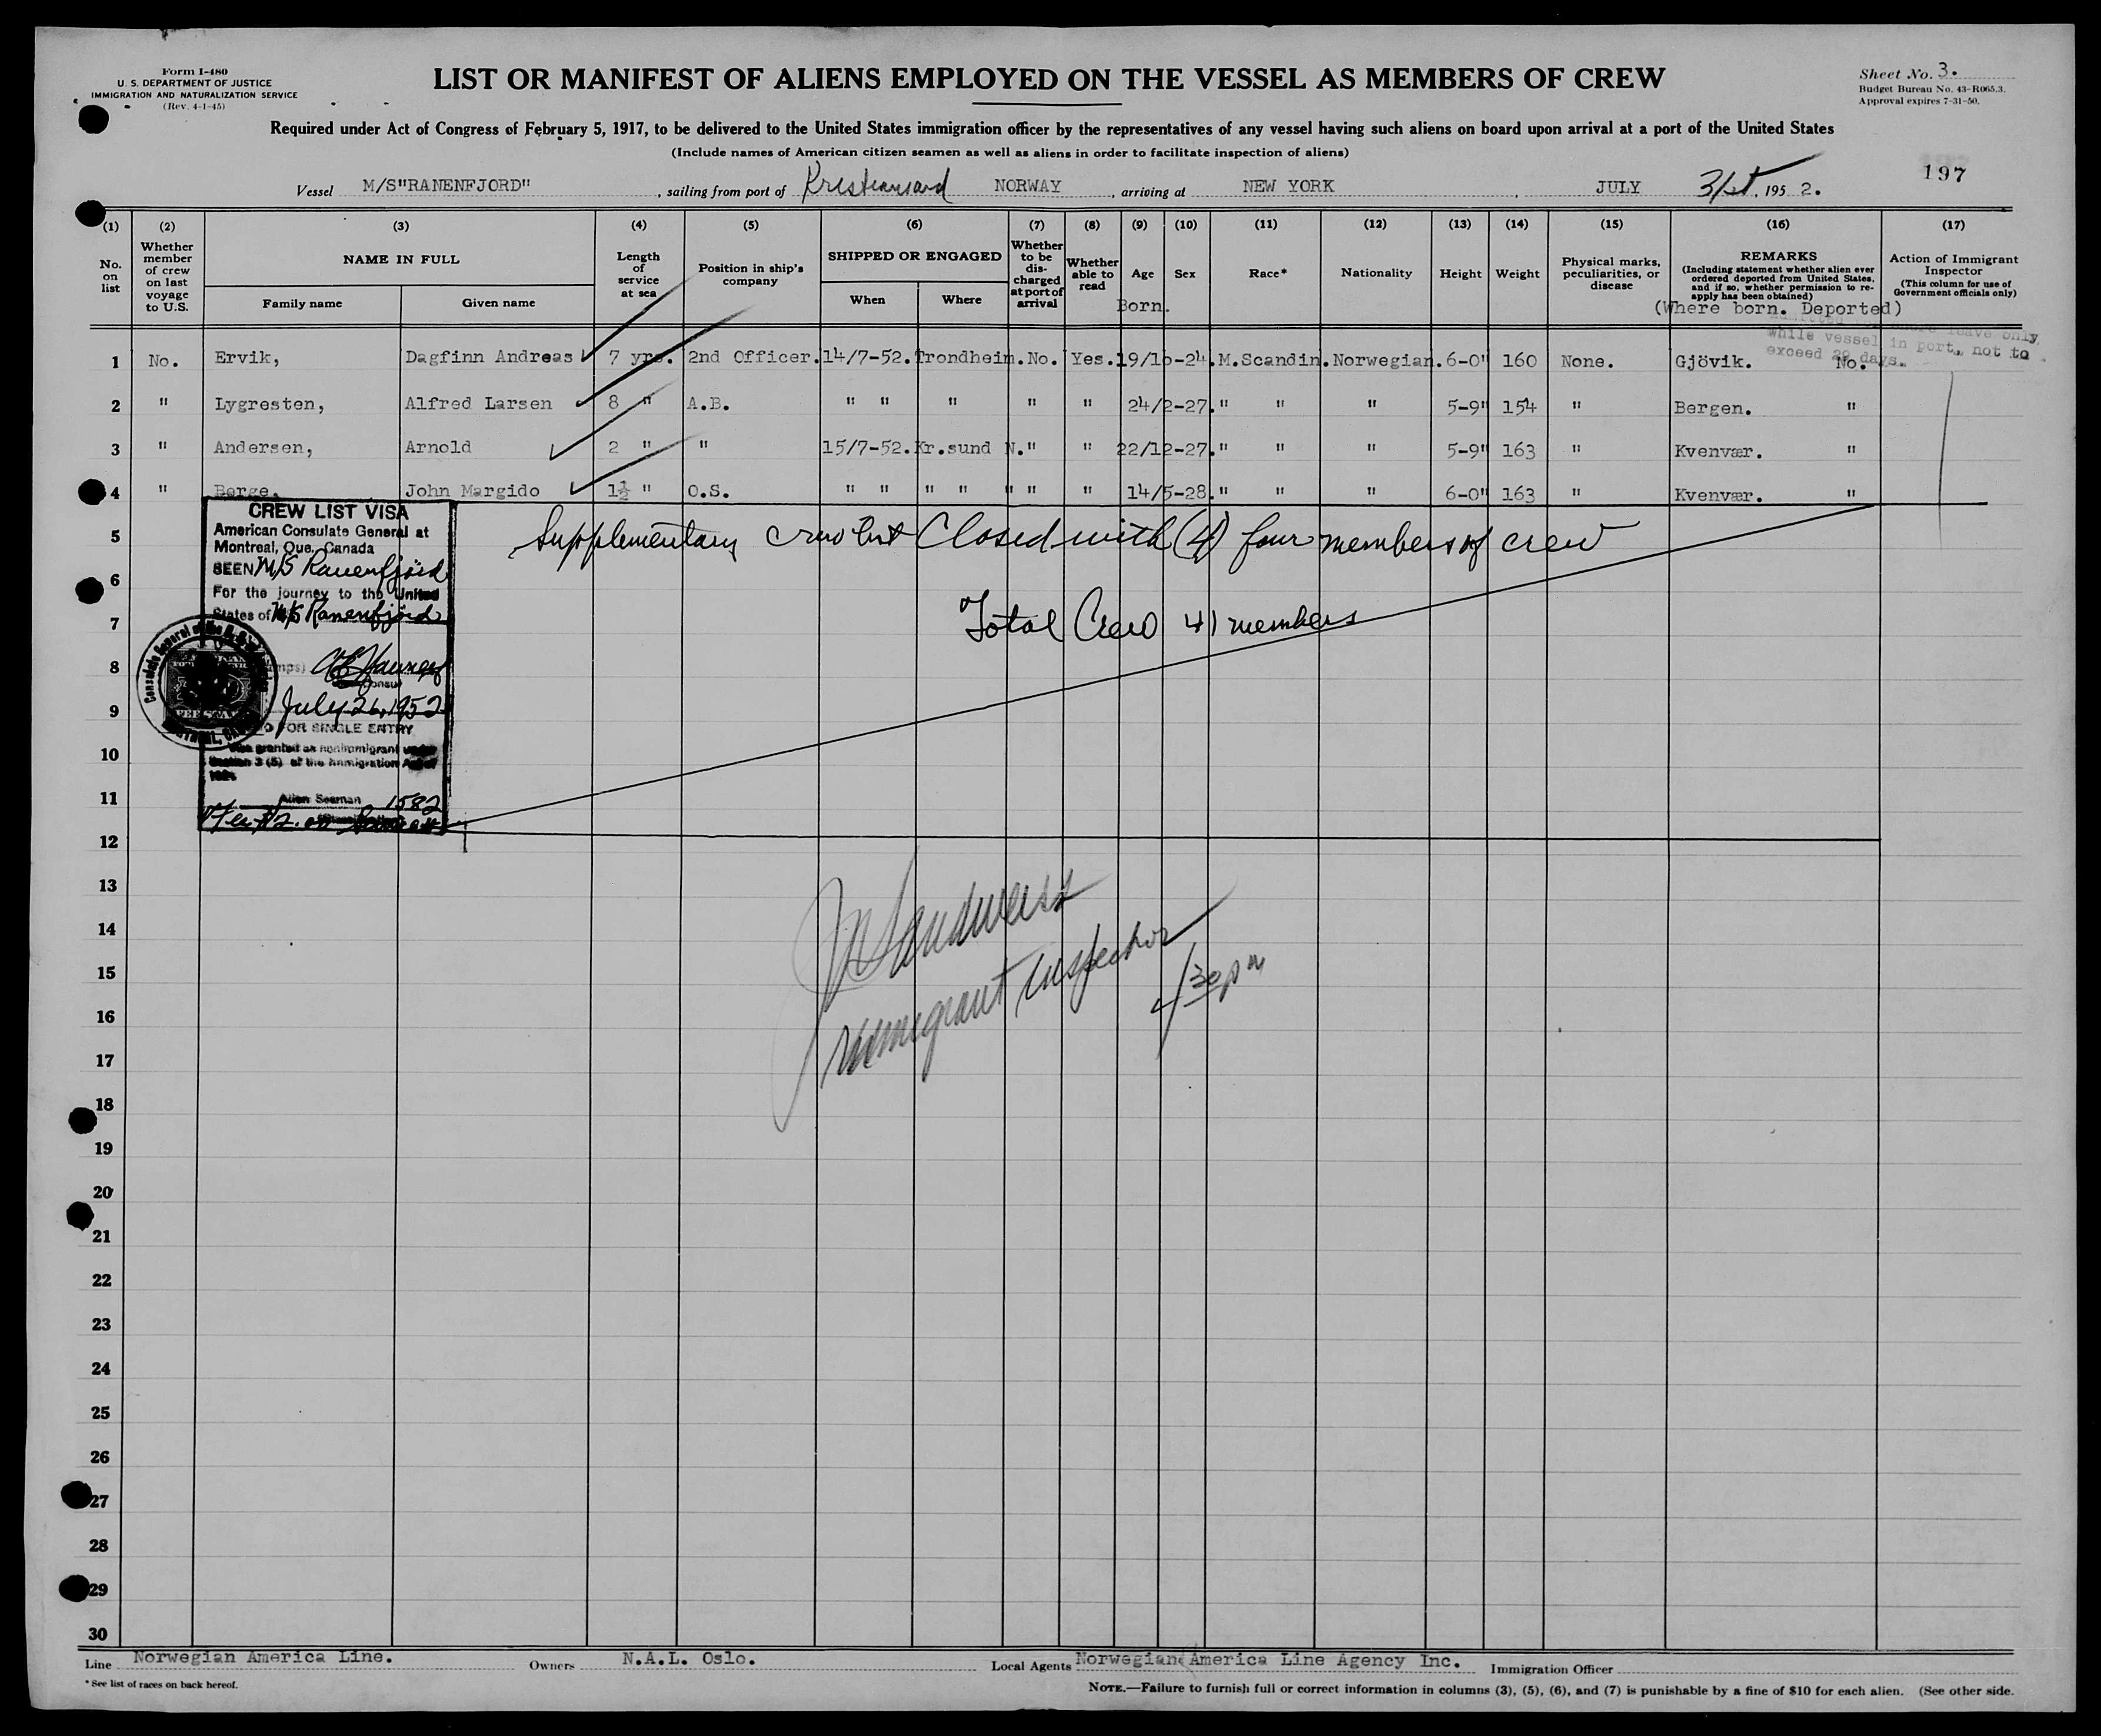 Form I-480
U. S. DEPARTMENT OF JUSTICE
IMMIGRATION AND NATURALIZATION SERVICE
(Rev. 4-1-45)
LIST OR MANIFEST OF ALIENS EMPLOYED ON THE VESSEL AS MEMBERS OF CREW
Sheet No. 3.
Budget Bureau No. 43-R065.3.
Approval expires 7-31-50.
Required under Act of Congress of February 5, 1917, to be delivered to the United States immigration officer by the representatives of any vessel having such aliens on board upon arrival at a port of the United States
(Include names of American citizen seamen as well as aliens in order to facilitate inspection of aliens)
197
Vessel M/S"RANENFJORD" , sailing from port of Kristiansand NORWAY , arriving at NEW YORK , JULY 31st, 195 2.
(1) (2) (3) (4) (5) (6) (7) (8) (9) (10) (11) (12) (13) (14) (15) (16) (17)
No. on list
Whether member of crew on last voyage to U.S.
NAME IN FULL
Family name Given name
Length of service at sea
Position in ship's company
SHIPPED OR ENGAGED
When Where
Whether to be discharged at port of arrival
Whether able to read
Age
Born.
Sex
Race*
Nationality
Height
Weight
Physical marks, peculiarities, or disease
REMARKS
(Including statement whether alien ever ordered deported from United States, and if so, whether permission to re-apply has been obtained)
(Where born. Deported)
Action of Immigrant Inspector
(This column for use of Government officials only)
leave only
while vessel in port, not to
exceed 29 days.
1 No. Ervik, Dagfinn Andreas 7 yrs. 2nd Officer. 14/7-52. Trondheim. No. Yes. 19/10-24. M. Scandin. Norwegian. 6-0" 160 None. Gjövik. No.
2 " Lygresten, Alfred Larsen 8 " A.B. " " " " " 24/2-27. " " " 5-9" 154 " Bergen. "
3 " Andersen, Arnold 2 " " 15/7-52. Kr.sund N. " " 22/12-27. " " " 5-9" 163 " Kvenvær. "
4 " Berge, John Margido 1½ " O.S. " " " " " " " 14/5-28. " " " 6-0" 163 " Kvenvær. "
CREW LIST VISA
American Consulate General at
Montreal, Que. Canada
SEEN M/S Ranenfjord
For the journey to the United
States of M/S Ranenfjord
Consul
July 26, 1952
FOR SINGLE ENTRY
Visa granted as nonimmigrant under
Section 3 (5) of the Immigration Act of
1924
Alien Seaman 1582
Supplementary crew list Closed with (4) four members of crew
Total Crew 41 members
5
6
7
8
9
10
11
12
13
14
15
16
17
18
19
20
21
22
23
24
25
26
27
28
29
30
Sandweiss
Immigrant Inspector
4/30 pm
Line Norwegian America Line. Owners N.A.L. Oslo. Local Agents Norwegian America Line Agency Inc. Immigration Officer
* See list of races on back hereof.
NOTE.—Failure to furnish full or correct information in columns (3), (5), (6), and (7) is punishable by a fine of $10 for each alien. (See other side.